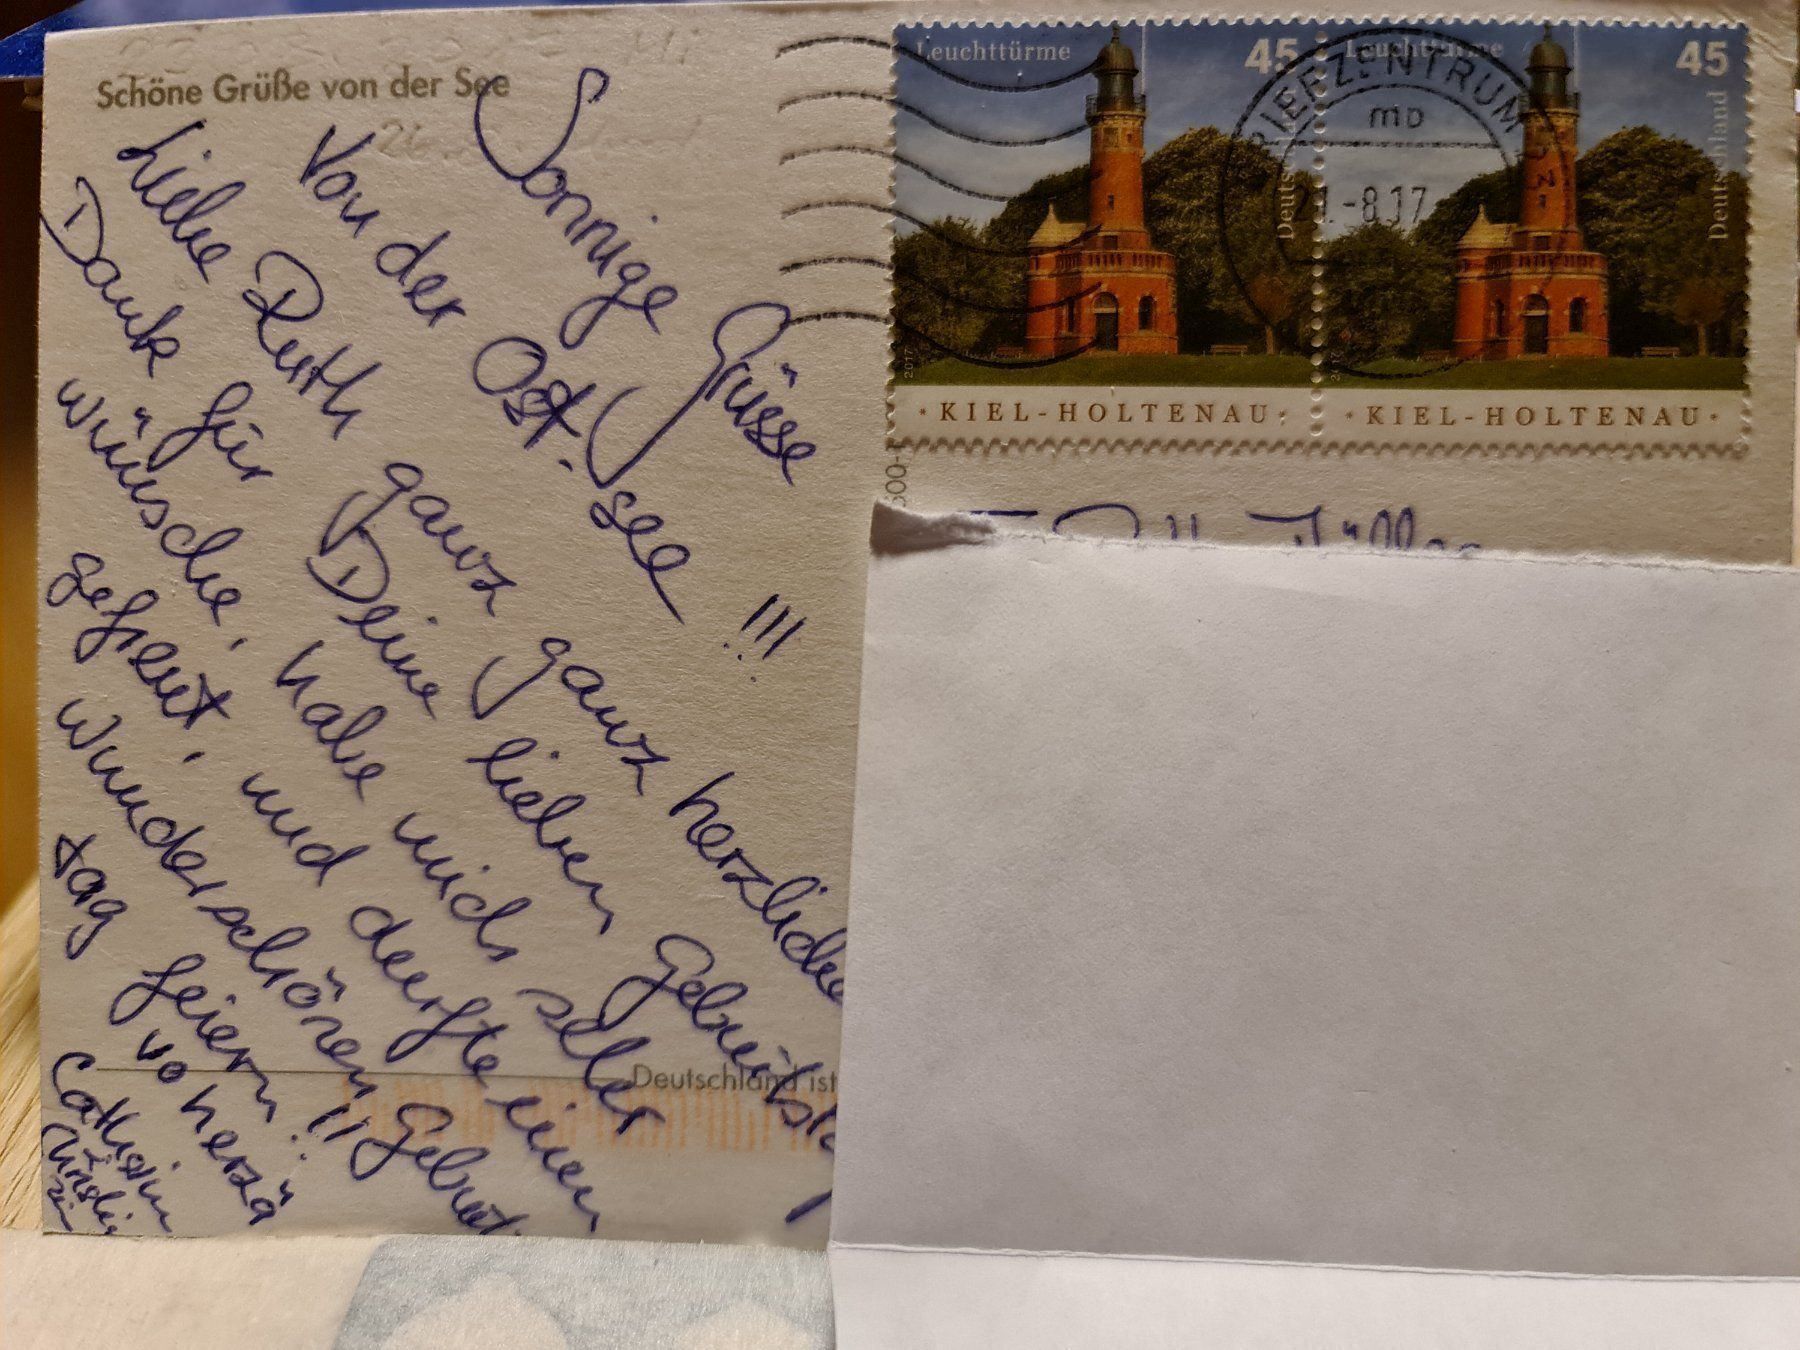 Schöne Grüße von der See
Sonnige Grüsse
Von der Ost-see !!!
Liebe Ruth ganz ganz herzlichen
Dank für Deine lieben Geburtstags
wünsche, habe mich selber
gefreut, und durfte einen
wunderschönen Geburts
tag feiern!!
vo herzä
Cathrin
Deutschland ist
Leuchttürme 45
Deutschland
2017
* KIEL-HOLTENAU *
Leuchttürme 45
Deutschland
* KIEL-HOLTENAU *
BRIEFZENTRUM
mb
21.-8.17